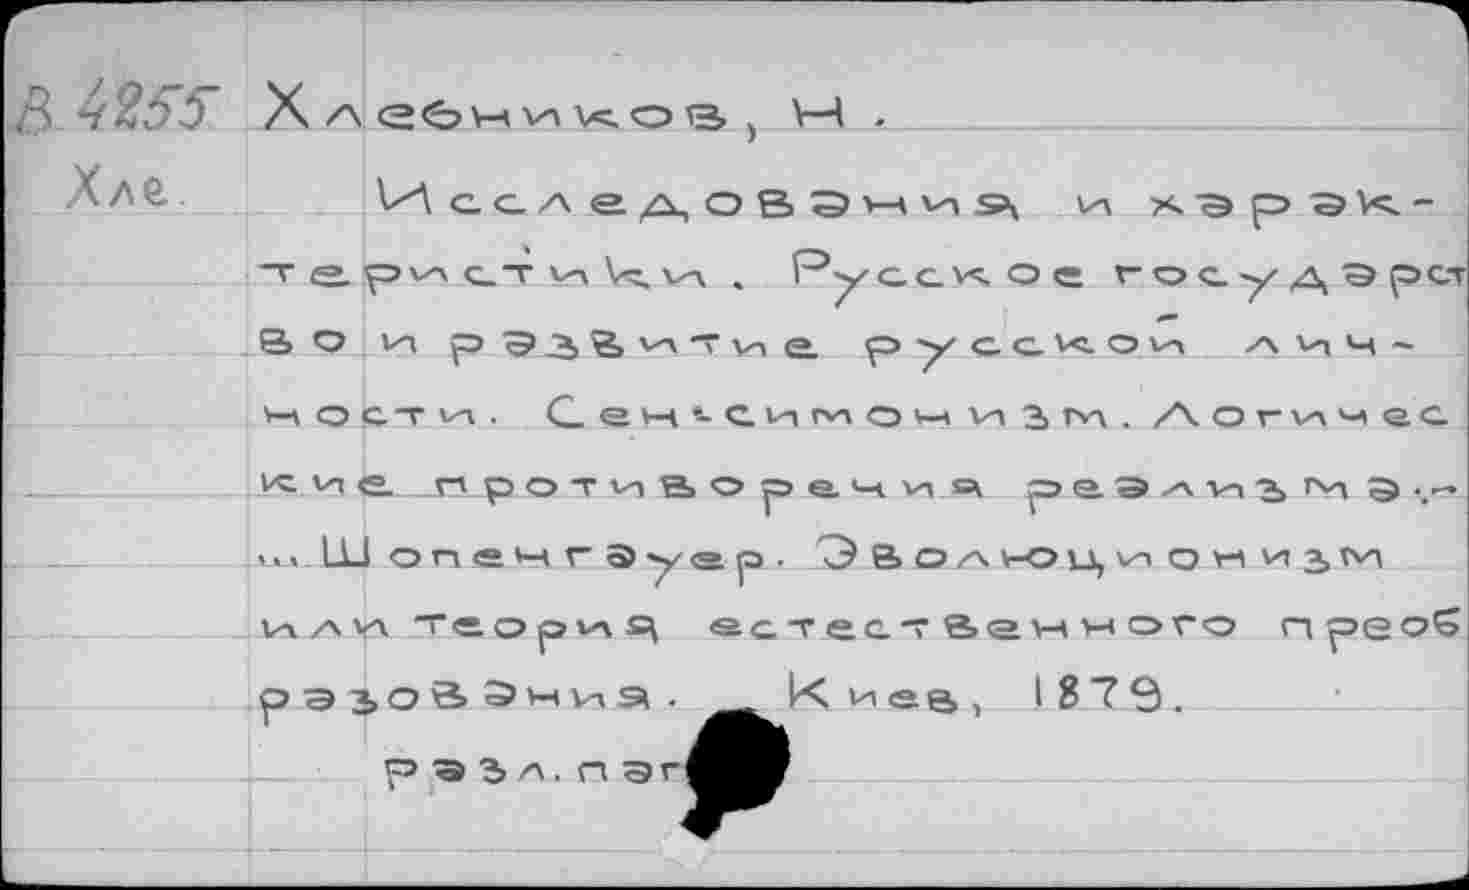 В 4255 Хлебников, Н.
Хле. Исследования и харак-
теристики. Русское государст
во и развитие русской лич-
ности. Сен-симонизм. Логичес
кие противоречия реализма...
... Шопенгауер. Эволюционизм
или теория естественного преоб
разования. Киев, 1879.
разл. паг